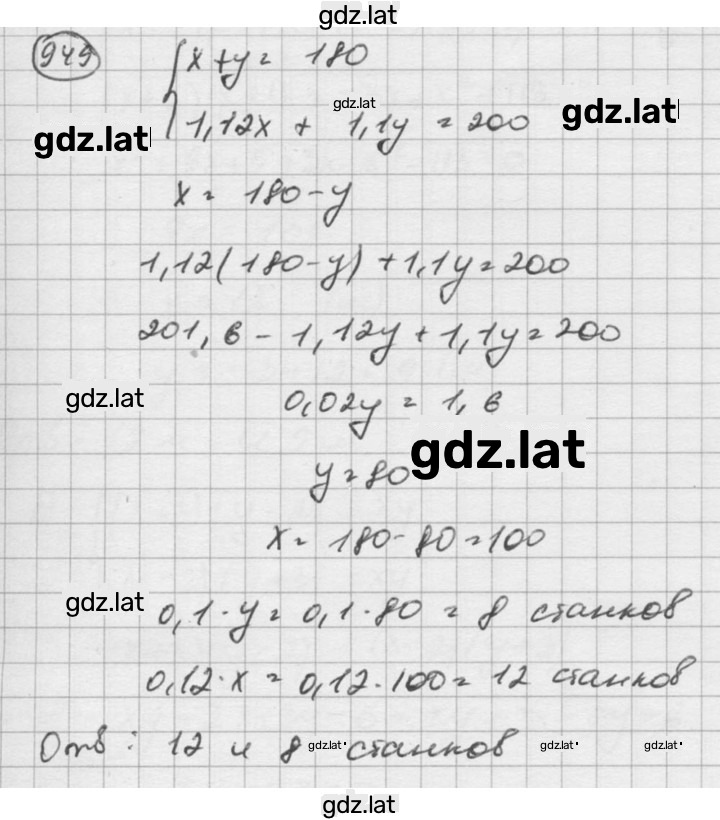 gdz.lat
949 { x + y = 180
gdz.lat
gdz.lat 1,12x + 1,1y = 200 gdz.lat
x = 180 - y
1,12(180 - y) + 1,1y = 200
201,6 - 1,12y + 1,1y = 200
gdz.lat 0,02y = 1,6
y = 80 gdz.lat
x = 180 - 80 = 100
gdz.lat 0,1 · y = 0,1 · 80 = 8 станков
0,12 · x = 0,12 · 100 = 12 станков
Отв: 12 и 8 gdz.lat станков gdz.lat gdz.lat
gdz.lat